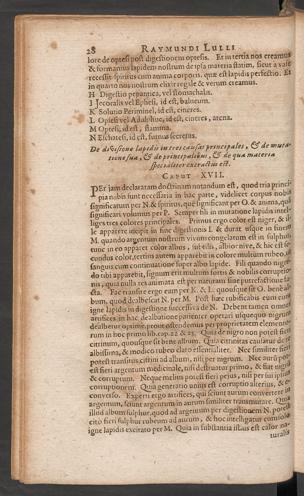 28 RAYMUNDI LULLI
lore de optesi post digestionem optesis. Et in tertia nos creamus
& formamus lapidem nostrum de ipsa materia statim, sicut a vase
recessit spiritus cum anima corporis, quæ est lapidis perfectio. Et
in quarto nos nostrum elixir regale & verum creamus.
H Digestio pepantica, vel stomachalis.
I Jecoralis vel Ephesi, id est, balneum.
K Solutio Periminel, id est, cineres.
L Optesi vel Adulphue, id est, cineres, arena.
M Optesi, id est, flamma.
N Eschatesi, id est, fumus secretus.
De divisione lapidis in tres causas principales, & de muta-
tione sua, & de principalibus, & de qua materia
specialiter extractus est.
CAPUT XVII.
PEr jam declaratam doctrinam notandum est, quod tria princi-
pia nobis sunt necessaria in hac parte, videlicet corpus nobis
significatum per N & spiritus, qui significatur per O. & anima, quæ
significari volumus per P. Semper hi in mutatione lapidis intel-
liges tres colores principales. Primus ergo color est niger, &
le apparere incipit in fine digestionis I. & durat usque in finem
M quando argentum nostrum vivum congelatum est in sulphur,
tunc in eo apparet color albus, sit
cundus color, tertius autem apparebit in colore multum rubeo,
sanguis cum continuatione super albo lapide. Fili quando nigre-
do tibi apparebit, signum erit multum fortis & nobilis corruptio-
nis, quia nulla res animata est per naturam sine putrefactione
cta. Fac transire ergo eum per K. & L. quousque sit O. bene al-
bum, quod dealbescat N. per M. Post hæc rubificabis eum cum
igne lapidis in digestione successiva de N. Debent tamen omnes
artifices in hac dealbatione patienter operari usquequo nigrum
dealbetur optime, prout ostendemus per proprietatem elemento-
rum in hoc primo lib. cap. 22 & 23. Quia de nigro non potest fieri
citrinum, quousque sit bene album. Quia citrinitas causatur de re
albissima, & modico rubeo claro resplenditer. Nec similiter fieri
potest transitus citrini ad album, nisi per nigrum. Nec aurum pot-
est fieri argentum medicinale, nisi destruatur primo, & fiat nigrum
& corruptum. Neque melius potest fieri pejus, nisi per
corruptionem. Quia generatio unius est corruptio alterius, & e-
converso. Experti ergo artifices, qui sciunt aurum convertere in
argentum, sciunt argentum in aurum similiter transmutare. Quia
illud album sulphur, quod ad argentum per digestionem N. potest
cito fieri sulphur rubeum ad aurum, & hoc intelligatur cum solo
igne lapidis excitato per M. Quia in substantia illius est calor na-
turalis